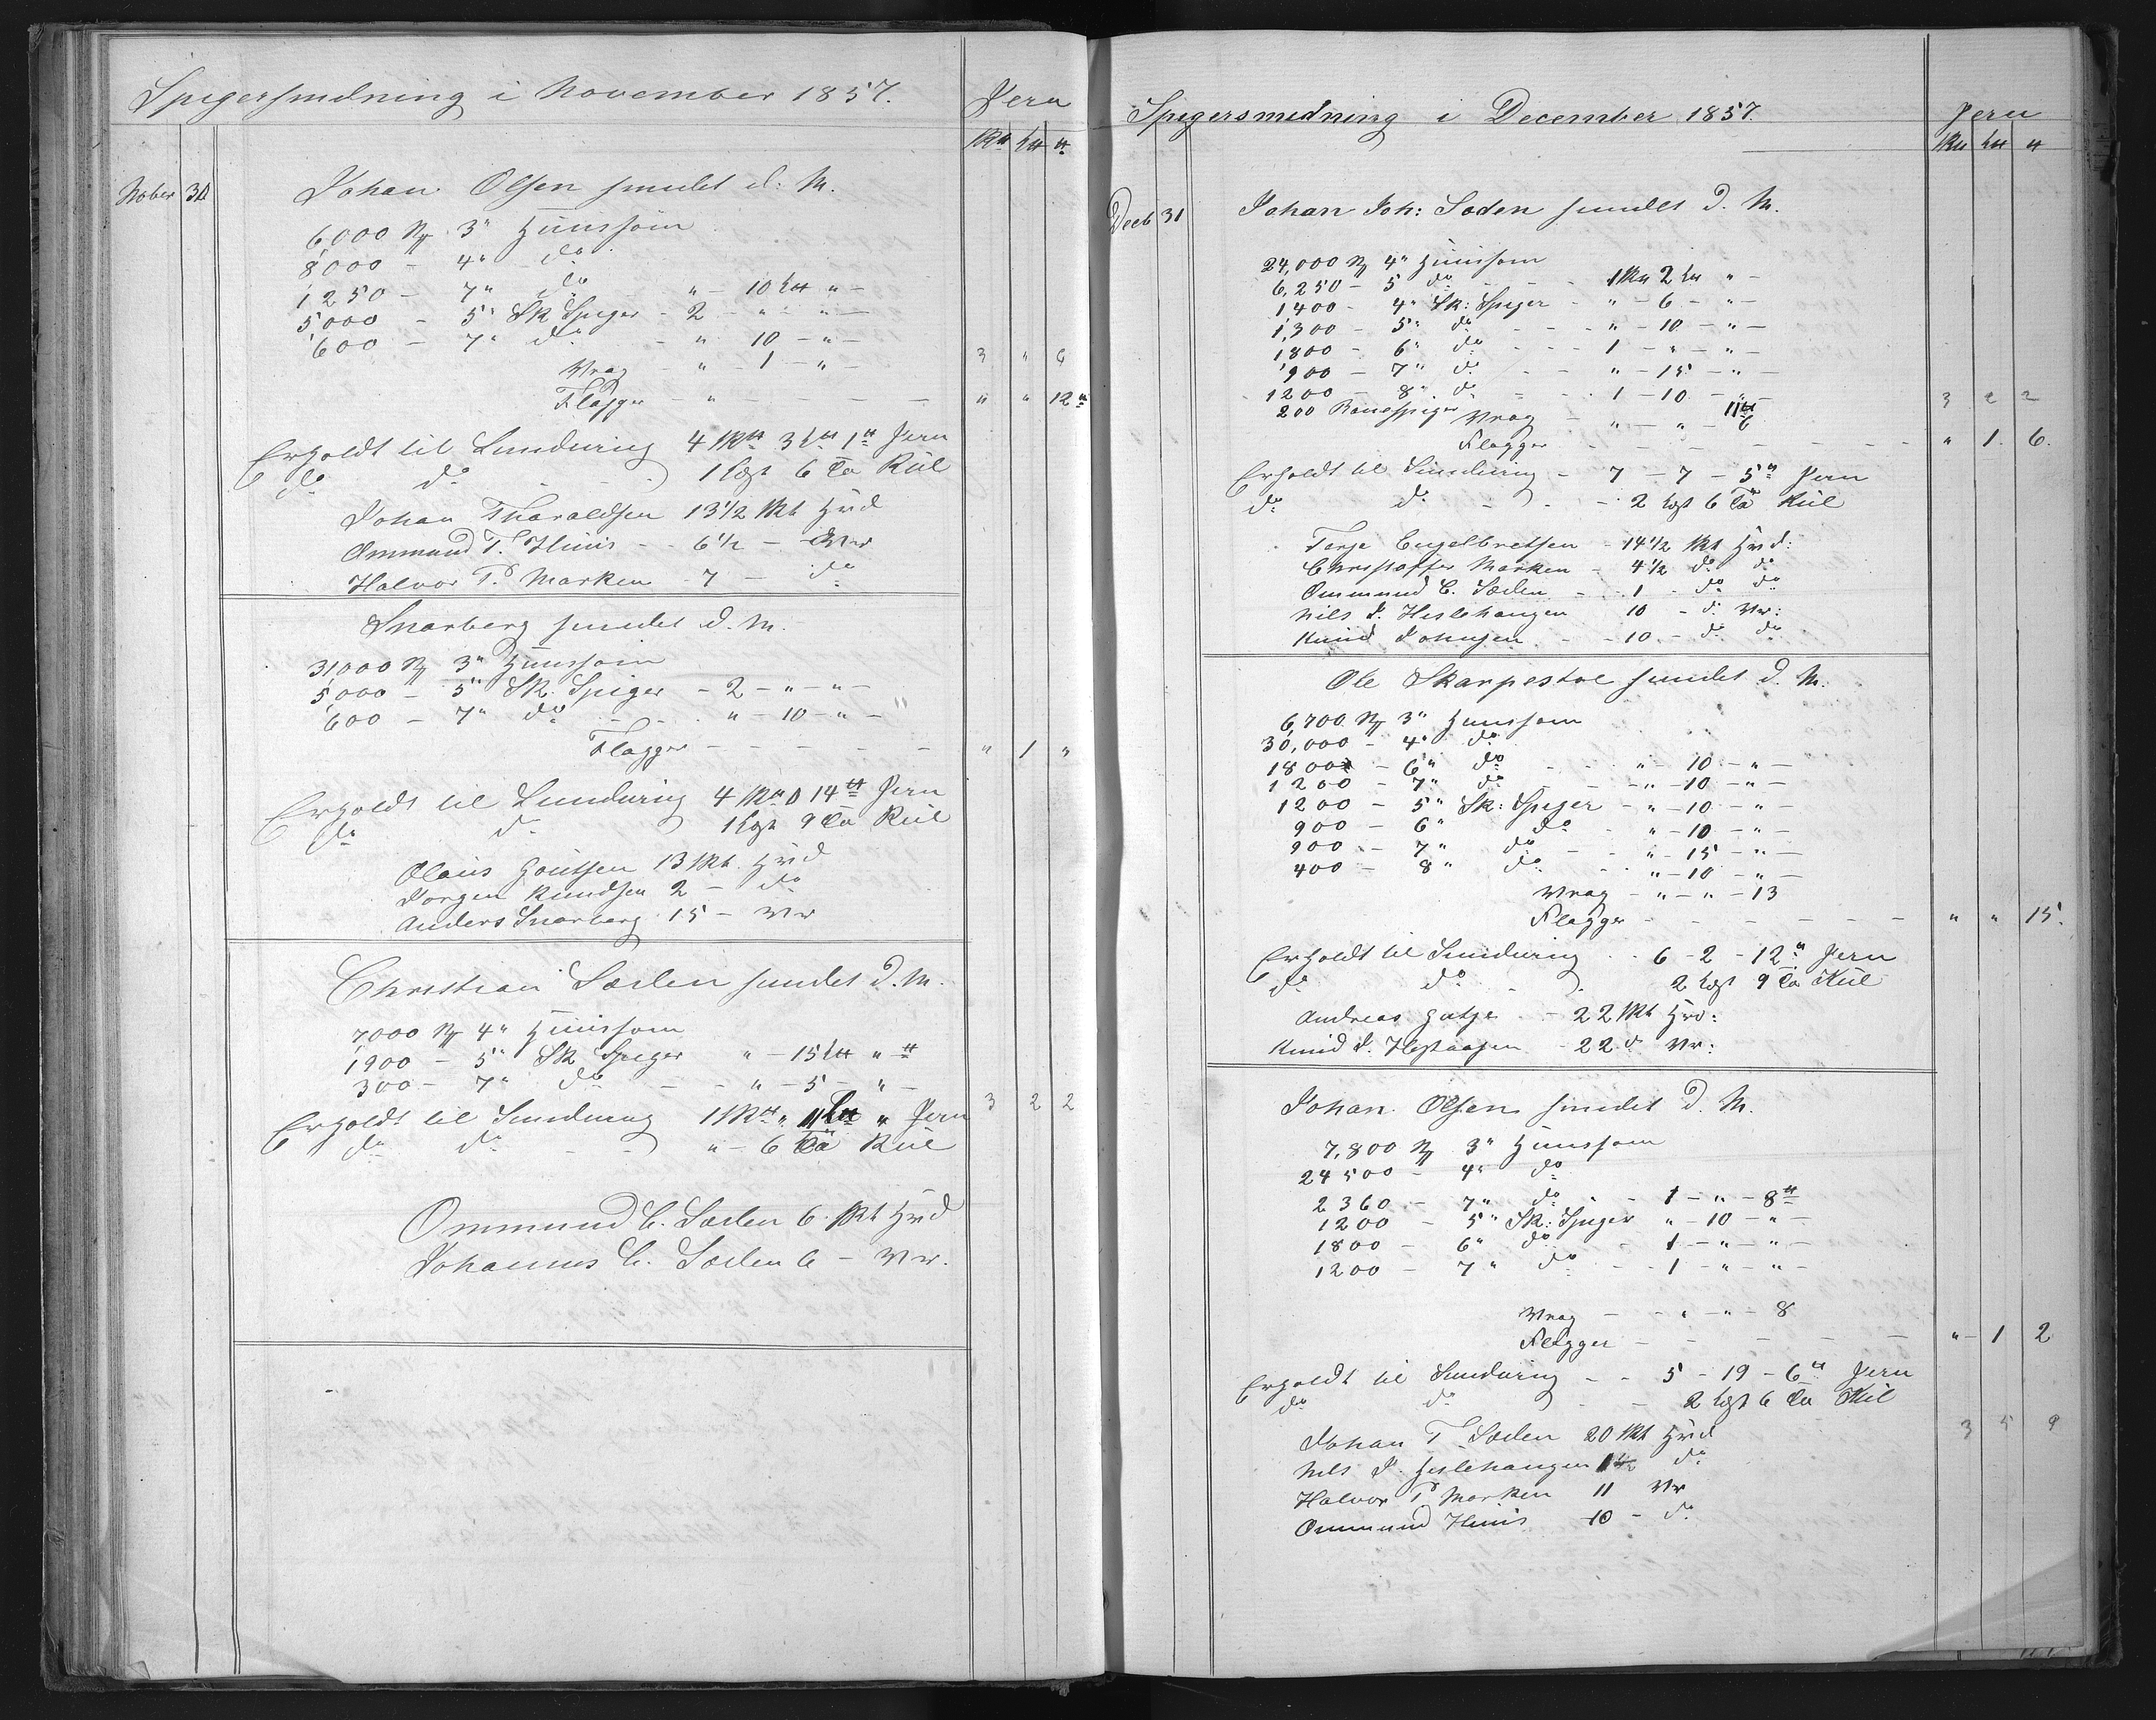 Spigersmedning i November 1857.
Jern
Nober 30
Johan Olsen smedet d. M.
6,000 3" Huussøm
8,000 - 4" do
1250 - 7" do " - 10 L " -
5,000 - 5" Sk Spiger - 2 - " - " -
600 - 7" do - " 10 - " -
Vrag - " - 1 - " - 3 " 6
Flagger - " - - - " " 12
Erholdt til Smedning 4 3 1 Jern
do do 1 Lest 6 Tø Kul
Johan Tharaldsen 13 1/2 Skt Hvd
Ommund T. Huus - - 6 1/2 - Vr
Halvor P. Marken - 7 - do
Snarberg smedet d. M.
31,000 3" Huussøm
5,000 - 5" Sk. Spiger - 2 - " - " -
600 - 7" do - - " - 10 - " -
Flagger - - - - - " 1 "
Erholdt til Smedning 4 0 14 Jern
do do 1 Lest 9 Tø Kul
Olaus Goutsen 13 Skt. Hvd
Jørgen Knudsen 2 - do
Anders Snarberg 15 - Vr
Christian Søslen smedet d. M.
7,000 4" Huussøm
1,900 - 5" Sk Spiger " - 15 L "
300 - 7" do - - " - 5 - " -
3 2 2
Erholdt til Smedning 1 " 11 " Jern
do do - - " - 6 Tø Kul
Ommund C. Søslen 6 Skt Hvd
Johannes C. Søslen 6 - Vr.
Spigersmedning i December 1857.
Jern
Decb 31
Johan Joh: Soden smedet d. M.
24,000 4" Huussøm
6,250 - 5 do - - - 1 2 " -
1400 - 4" Sk: Spiger - " - 6 - " -
1,300 - 5" do - - - " - 10 - " -
1800 - 6" do - - - 1 - " - " -
900 - 7" do - - " - 15 - " -
1200 - 8" do - - - 1 - 10 - " -
3 2 2
200 Vrag - " - " - 6
Flagger - - - - - " 1 6.
Erholdt til Smedning - 7 - 7 - 5 Jern
do do - - - 2 Lest 6 Tø Kul
Terje Engelbretsen - 14 1/2 Skt Hvd:
Christoffer Marken - 4 1/2 do do
Ommund C. Søslen - - 1 - do do
Nils J. Heslehaugen 10 - do Vr:
Knud Johnsen - - 10 - do do
Ole Skarpestoe smedet d. M.
6,700 3" Huussøm
30,000 - 4" do
1800 - 6" do - - " - 10 - " -
1200 - 7" do - - " - 10 - " -
1200 - 5" Sk: Spiger - " - 10 - " -
900 - 6" do - " - 10 - " -
900 - 7" do - - " - 15 - " -
400 - 8" do - - " - 10 - " -
Vrag - " - " - 13
Flagger - - - - - - - " " 15.
Erholdt til Smedning - - 6 - 2 - 12 Jern
do do - - 2 Lest 9 Tø Kul
Andreas - 22 Skt Hvd:
Knud J. - 22 do Vr:
Johan Olsen smedet d. M.
7,800 3" Huussøm
24500 - 4" do
2360 - 7" do - - 1 - " - 8
1200 - 5" Sk: Spiger " - 10 - " -
1800 - 6" do - 1 - " - " -
1200 - 7" do - - 1 - " - " -
Vrag - - " - " - 8
Flagger - - - - - " - 1 2
Erholdt til Smedning - - 5 - 19 - 6 Jern
do do - - 2 Lest 6 Tø Kul
3 5 9
Johan T. Søslen 20 Skt Hvd
Nils J. Heslehaugen 1 1/2 do
Halvor P Marken 11 Vr
Ommund Huus 10 - do